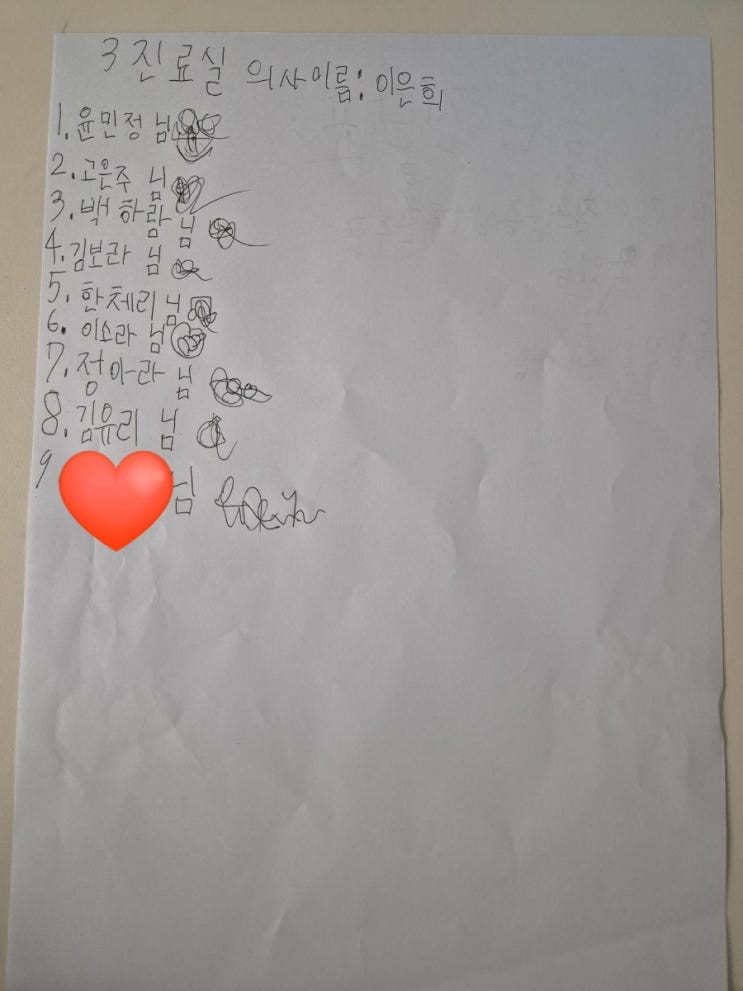 3 진료실 의사이름: 이은희
1. 윤민정 님
2. 고은주 님
3. 백하람 님
4. 김보라 님
5. 한체리 님
6. 이소라 님
7. 정아라 님
8. 김유리 님
9 님